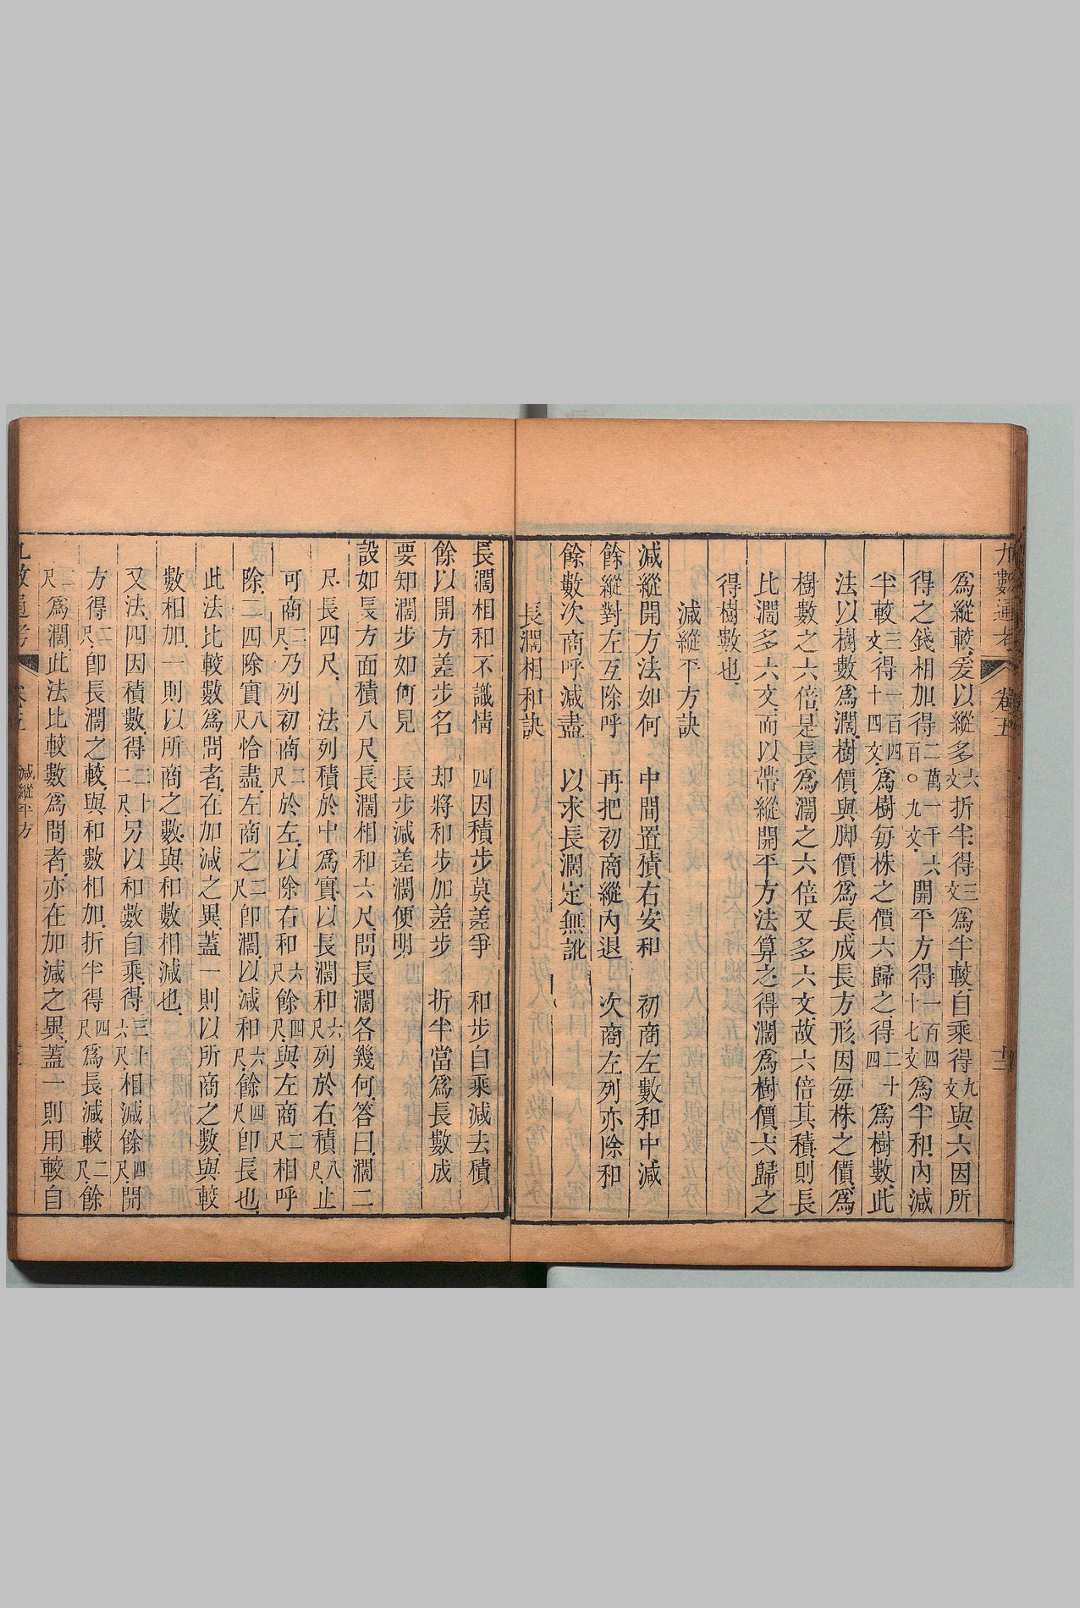 九數通考
卷五
為縱較爰以縱多六文折半得三文為半較自乘得九文與六因所
得之錢相加得二萬一千六百〇九文開平方得一百四十七文為半和內減
半較三文得一百四十四文為樹每株之價六歸之得二十四為樹數此
法以樹數為濶樹價與脚價為長成長方形因每株之價為
樹數之六倍是長為濶之六倍又多六文故六倍其積則長
比濶多六文而以帶縱開平方法算之得濶為樹價六歸之
得樹數也
減縱平方訣
減縱開方法如何 中間置積右安和 初商左數和中減
餘縱對左互除呼 再把初商縱內退 次商左列亦除和
餘數次商呼減盡 以求長濶定無訛
長濶相和訣
長濶相和不識情 四因積步莫差爭 和步自乘減去積
餘以開方差步名 却將和步加差步 折半當為長數成
要知濶步如何見 長步減差濶便明
設如長方面積八尺長濶相和六尺問長濶各幾何答曰濶二
尺長四尺 法列積於中為實以長濶和六尺列於右積八尺止
可商二尺乃列初商二尺於左以除右和六尺餘四尺與左商二尺相呼
除二四除實八尺恰盡左商之二尺即濶以減和六尺餘四尺即長也
此法比較數為問者在加減之異蓋一則以所商之數與較
數相加一則以所商之數與和數相減也
又法四因積數得三十二尺另以和數自乘得三十六尺相減餘四尺開
方得二尺即長濶之較與和數相加折半得四尺為長減較二尺餘
二尺為濶此法比較數為問者亦在加減之異蓋一則用較自
九數通考
卷五
減縱平方